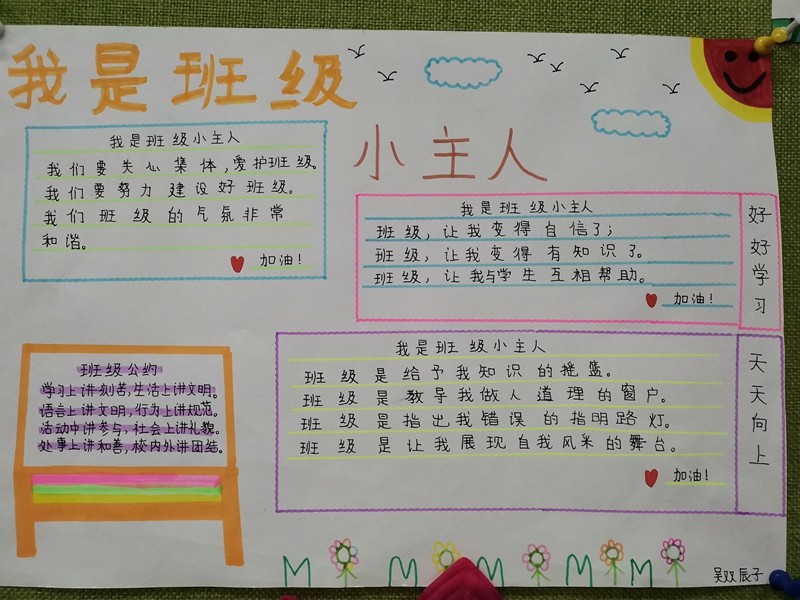 我是班级
小主人
我是班级小主人
我们要关心集体,爱护班级。
我们要努力建设好班级。
我们班级的气氛非常
和谐。
加油!
我是班级小主人
班级,让我变得自信了;
班级,让我变得有知识了。
班级,让我与学生互相帮助。
加油!
好好学习
班级公约
学习上讲刻苦,生活上讲文明。
语言上讲文明,行为上讲规范。
活动中讲参与,社会上讲礼貌。
处事上讲和善,校内外讲团结。
我是班级小主人
班级是给予我知识的摇篮。
班级是教导我做人道理的窗户。
班级是指出我错误的指明路灯。
班级是让我展现自我风采的舞台。
加油!
天天向上
吴双辰子